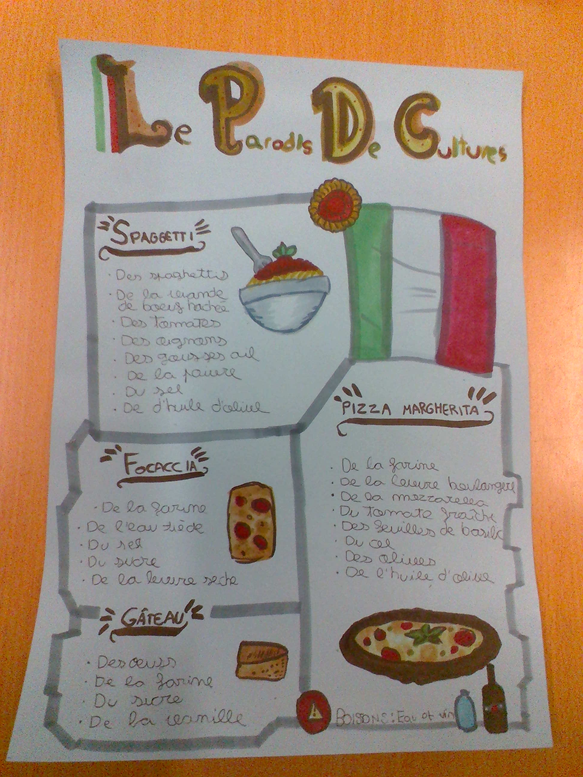 Le Paradis De Cultures
SPAGGETTI
· Des spaghettis
· De la viande
de boeuf hachée
· Des tomates
· Des oignons
· Des gousses ail
· De la pauvre
· Du sel
· De d'huile d'olive
PIZZA MARGHERITA
· De la farine
· De la levure boulangere
· De la mozzarella
· Du tomate fraîche
· Des feuilles de basilic
· Du sel
· Des olives
· De l'huile d'olive
FOCACCIA
· De la farine
· De l'eau tiède
· Du sel
· Du sucre
· De la levure sèche
GÂTEAU
· Des œufs
· De la farine
· Du sucre
· De la vanille
BOISONS : Eau et vin